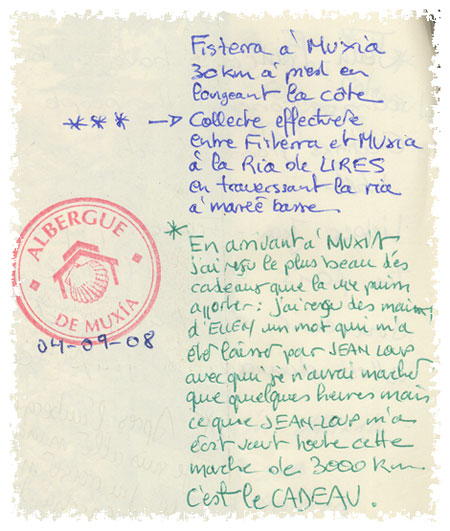 Fisterra à Muxia
30 km à pied en
longeant la côte
*** → Collecte effectuée
entre Fisterra et Muxia
à la Ria de LIRES
en traversant la ria
à marée basse
ALBERGUE
DE MUXÍA
04-09-08
* En arrivant à MUXIA
j'ai reçu le plus beau des
cadeaux que la vie puisse
apporter : j'ai reçu des mains
d'ELLEN un mot qui m'a
été laissé par JEAN LOUP
avec qui je n'aurai marché
que quelques heures mais
ce que JEAN-LOUP m'a
écrit vaut toute cette
marche de 3000 km.
C'est le CADEAU.